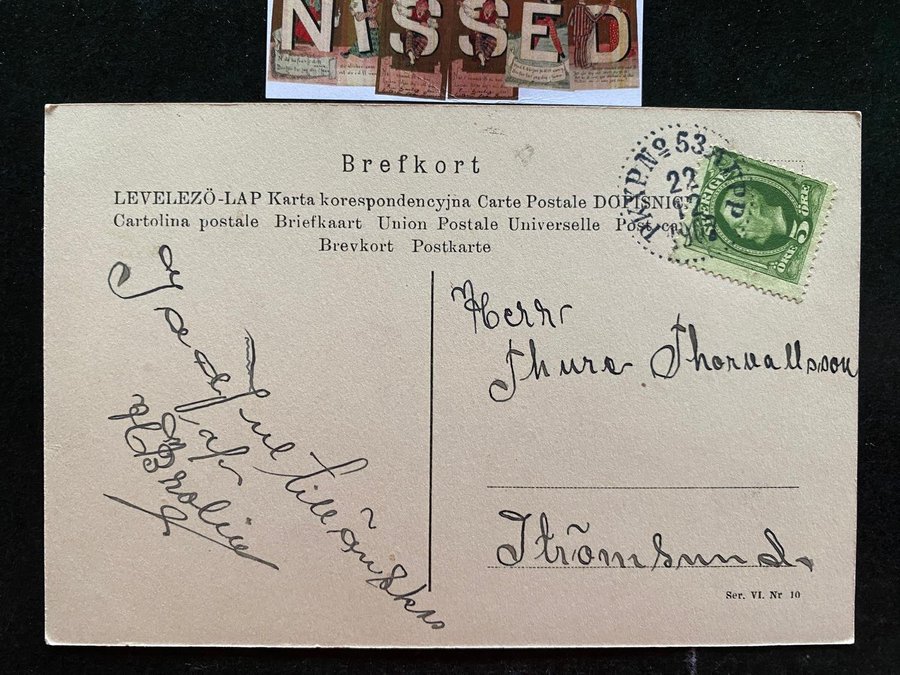 NISSED
Brefkort
LEVELEZÖ-LAP Karta korespondencyjna Carte Postale DOPISNICA
Cartolina postale Briefkaart Union Postale Universelle Post-ca
Brevkort Postkarte
PKXP. No 53
22
12
SVERIGE
5
ÖRE
ÖRE
Herr
Thure Thorvallsson
Strömsund.
God Jul tillönskas
af
Ser. VI. Nr 10